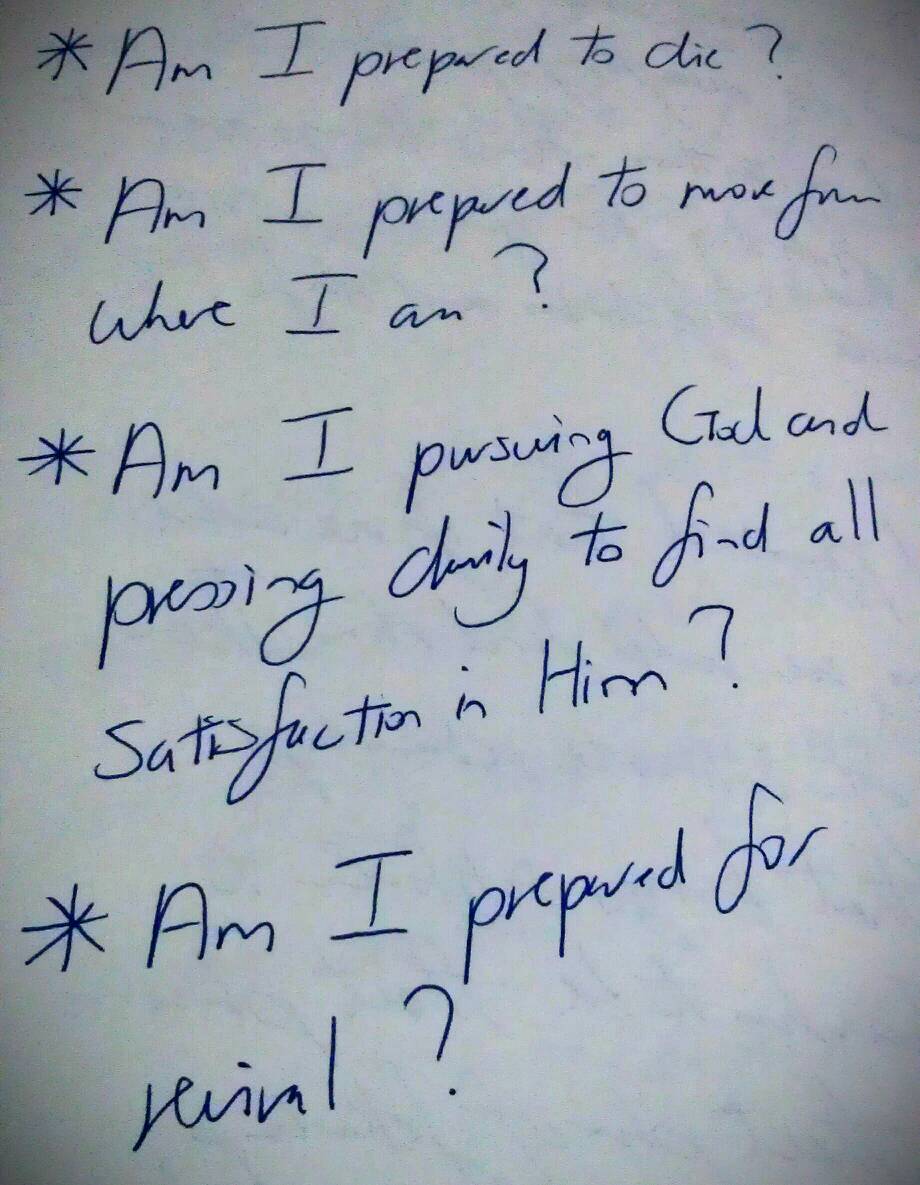 * Am I prepared to die?
* Am I prepared to move from
where I am?
* Am I pursuing God and
pressing daily to find all
Satisfaction in Him?
* Am I prepared for
revival?